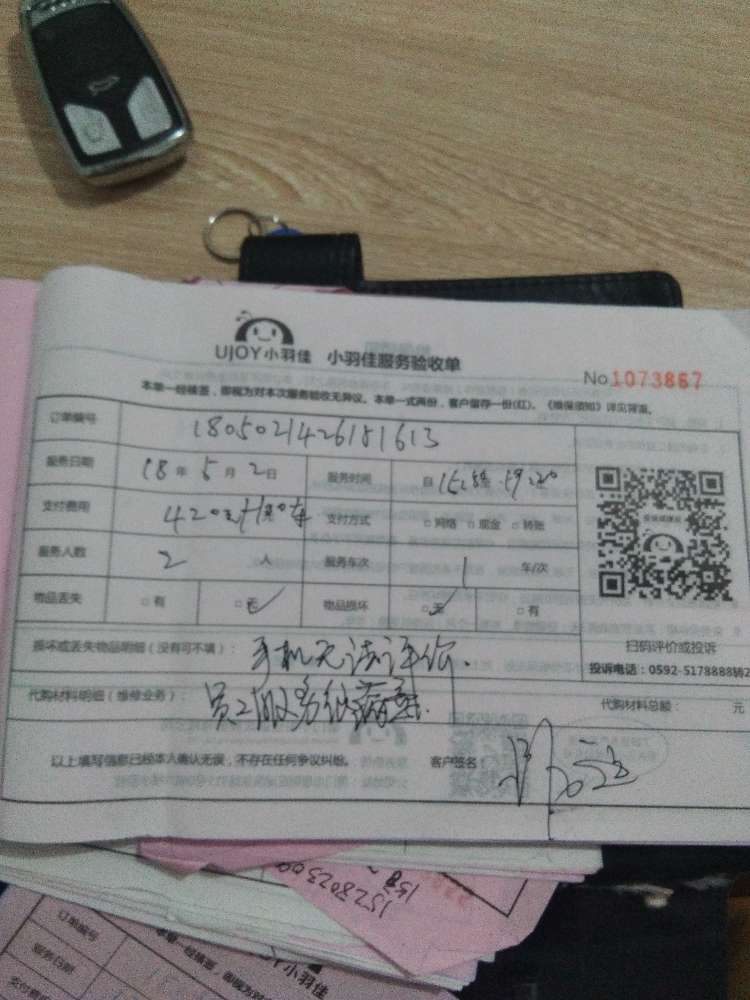 UJOY小羽佳 小羽佳服务验收单
No 1073867
本单一经核签，即视为对本次服务验收无异议。本单一式两份，客户留存一份(红)。《维保须知》详见背面。
订单编号 1805021426181613
服务日期 18年5月2日 服务时间 自
支付费用 420元 支付方式 □网络 □现金 □转账
服务人数 2人 服务车次 1 车/次
物品丢失 □有 □无 物品损坏 □无 □有
扫码评价或投诉
损坏或丢失物品明细（没有可不填）： 手机无法评价.
投诉电话：0592-5178888转2
代购材料明细（维修业务）： 员工服务很满意.
代购材料总额： 元
以上填写信息已经本人确认无误，不存在任何争议纠纷。 客户签名：
1528023
158
订单编号
服务日期
支付费用
本单一经核签，即视为对
UJOY小羽佳